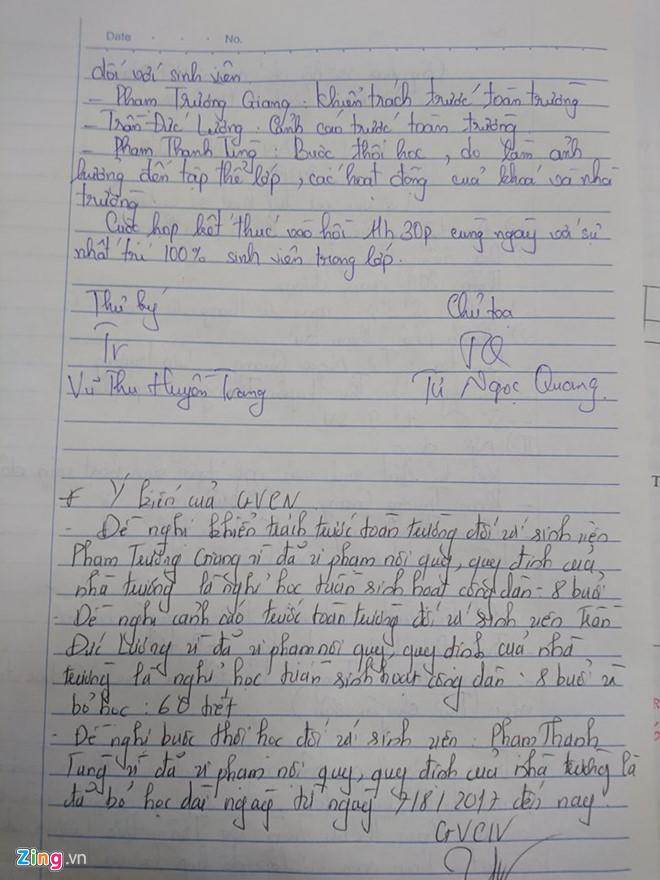 Date . . . No.
đối với sinh viên
- Phạm Trường Giang : khiển trách trước toàn trường
- Trần Đức Lương : Cảnh cáo trước toàn trường
- Phạm Thanh Tùng : Buộc thôi học, do làm ảnh
hưởng đến tập thể lớp, các hoạt động của khoa và nhà
trường.
Cuộc họp kết thúc vào hồi 11h30p cùng ngày với sự
nhất trí 100% sinh viên trong lớp.
Thư ký Chủ tọa
Tr TQ
Vũ Thu Huyền Trang Từ Ngọc Quang.
* Ý kiến của GVCN
- Đề nghị khiển trách trước toàn trường đối với sinh viên
Phạm Trường Giang vì đã vi phạm nội quy, quy định của
nhà trường là nghỉ học tuần sinh hoạt công dân - 8 buổi
- Đề nghị cảnh cáo trước toàn trường đối với sinh viên Trần
Đức Lương vì đã vi phạm nội quy, quy định của nhà
trường là nghỉ học tuần sinh hoạt công dân : 8 buổi và
bỏ học : 68 tiết
- Đề nghị buộc thôi học đối với sinh viên : Phạm Thanh
Tùng vì đã vi phạm nội quy, quy định của nhà trường là
đã bỏ học dài ngày từ ngày 7/8/2017 đến nay
GVCN
Zing.vn